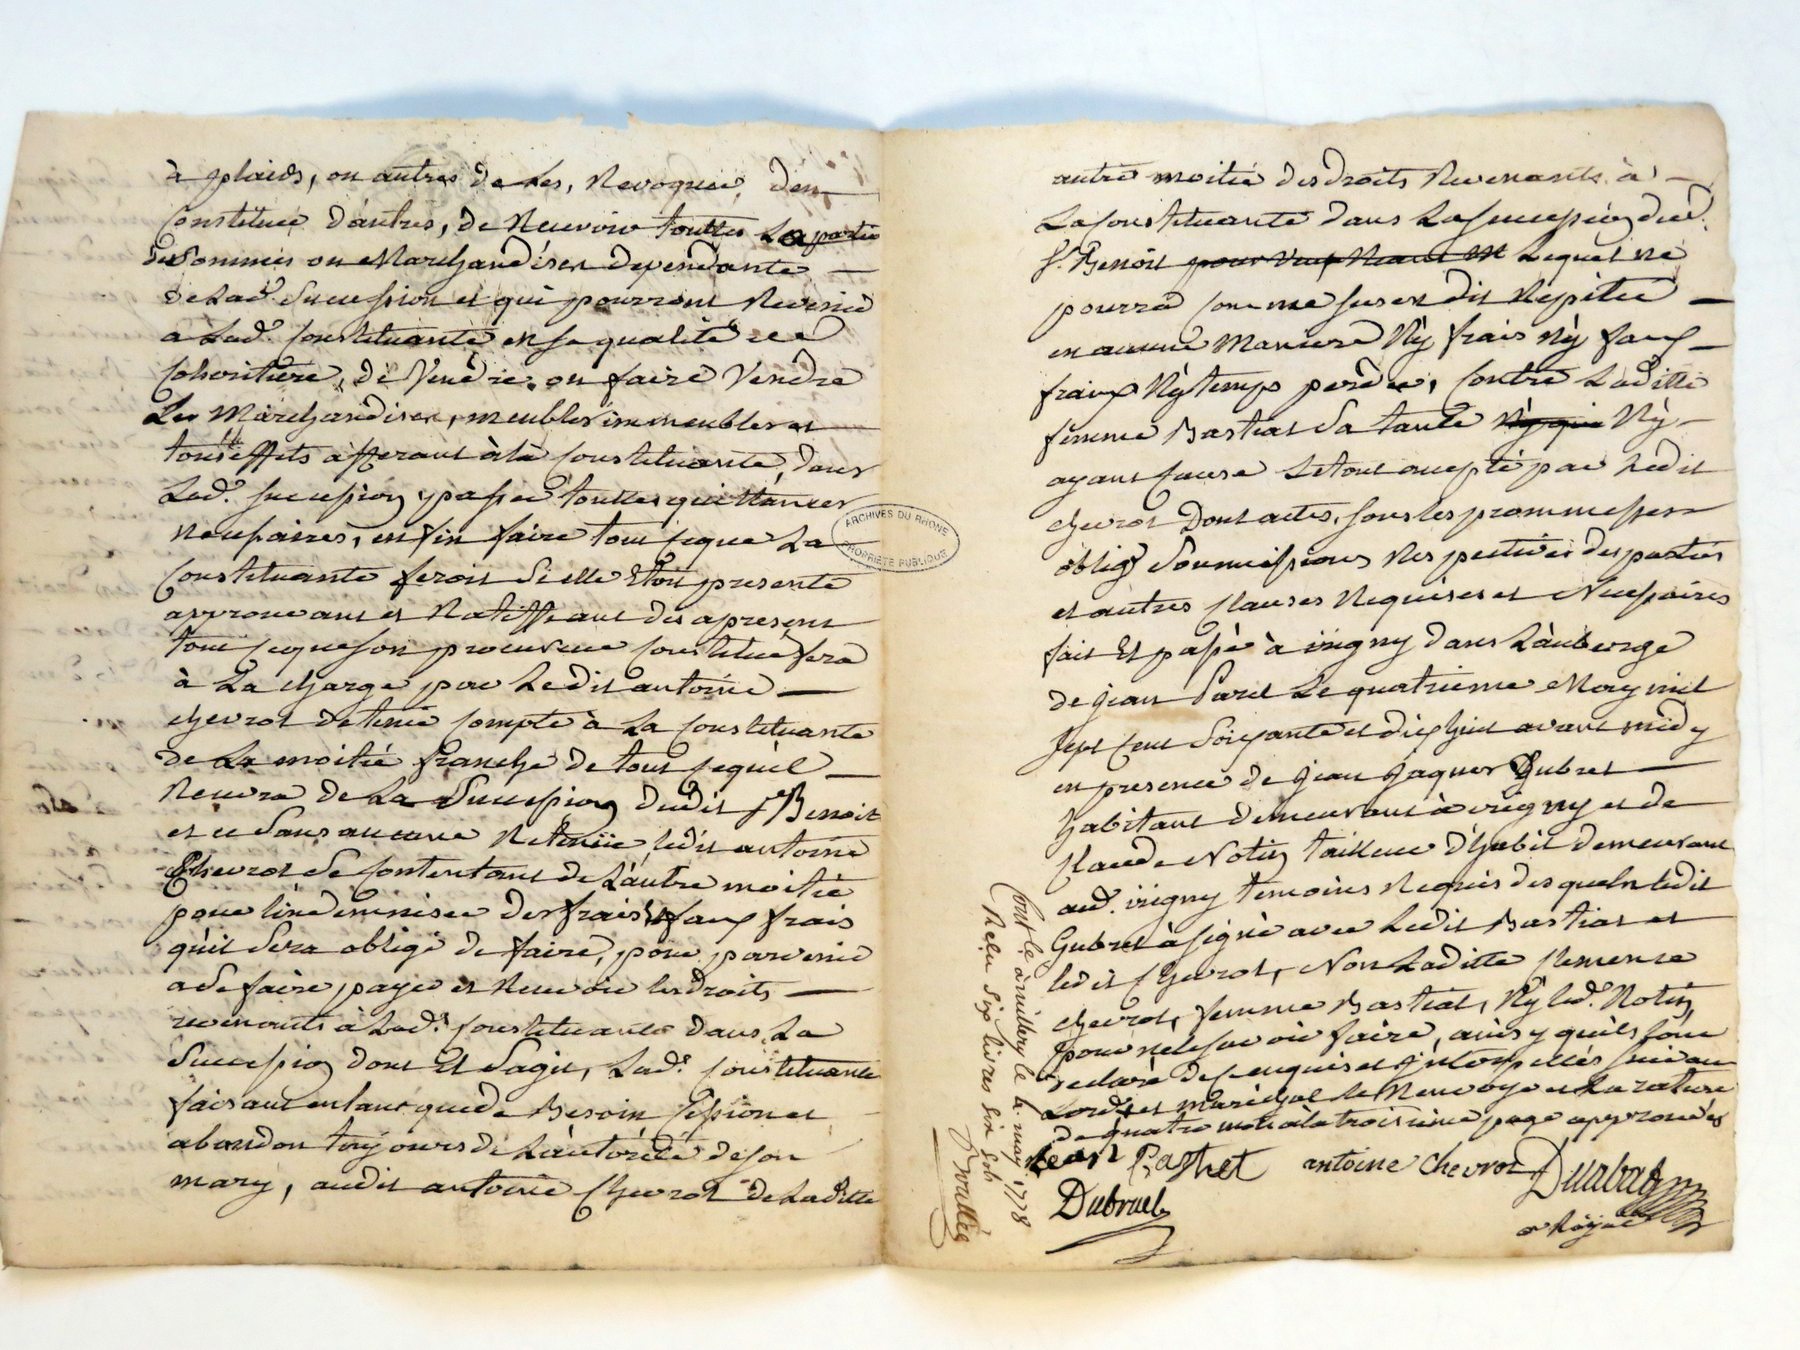 à plaids, ou autres de Les, Revoquer, d'en
Constituer d'autres, de Recevoir touttes La partie
des Sommes ou Marchandises dependante
de Lad. Succession et qui pourront Revenir
a Lad. Constituante en sa qualité de
Cohoritiere, de Vendre, ou faire Vendre
Les Marchandises, meubles immeubles et
tous effets afferant à la Constituante, dans
Lad. succession, passer touttes quittances
Necessaires, enfin faire tout ce que La
Constituante feroit Si elle Etoit presente
approuvant et Ratiffiant des apresent
tout ce que son procureur constitué fera
à La charge par Ledit antoine
chevrot de tenir Compte à La Constituante
de La moitié franche de tout ce qu'il
Recevra de La Succession dudit Sr Benoit
et ce Sans aucune Retenüe ledit antoine
Chevrot Se Contentant de L'autre moitié
pour l'indemniser des frais et faux frais
qu'il Sera obligé de faire, pour parvenir
a Se faire payer et Recevoir les droits
revenants à Lad. Constituante dans La
Succession dont Et S'agit, Lad. Constituante
faisant en tant que de Besoin Cession et
abandon toujours de L'autorité de son
mary, audit antoine Chevrot de La ditte
autre moitié des droits Revenants à
La Constituante dans La succession dud.
Sr Benoit Lequel ne
pourra comme sus est dit Repiter
en aucune Maniere Ny frais Ny faux
fraix Ny temps perdu, Contre Laditte
femme Bastiat Sa tante Ny
ayant cause Le tout accepté par Ledit
chevrot Dont actes, sous les promesses
oblig. Soumissions Respectives des parties
et autres Clauses Requises et Necessaires
fait Et passé à irigny dans L'auberge
de jean Parel Le quatrieme May mil
Sept Cent Soixante et dix huit avant midy
en presence de jean jaques Gubret
habitant demeurant à irigny et de
Claude Notin tailleur d'habit demeurant
aud. irigny temoins Requis desquels ledit
Gubret à signé avec Ledit Bastiat et
ledit Chevrot, Non Laditte Clemence
chevrot, femme Bastiat, Ny led. Notin
pour ne Sçavoir faire, ainsy qu'ils l'ont
declaré de ce enquis et interpellés suivant
Lord. et Le Renvoye et La rature
de quatre mots à la troisieme page approuvés
jean Bastiet antoine chevrot Duabat
Dubruel
n. Royal
Cont.lé à millery le 4. may 1778
Reçu Six livres Six sols
ARCHIVES DU RHONE
PROPRIETE PUBLIQUE